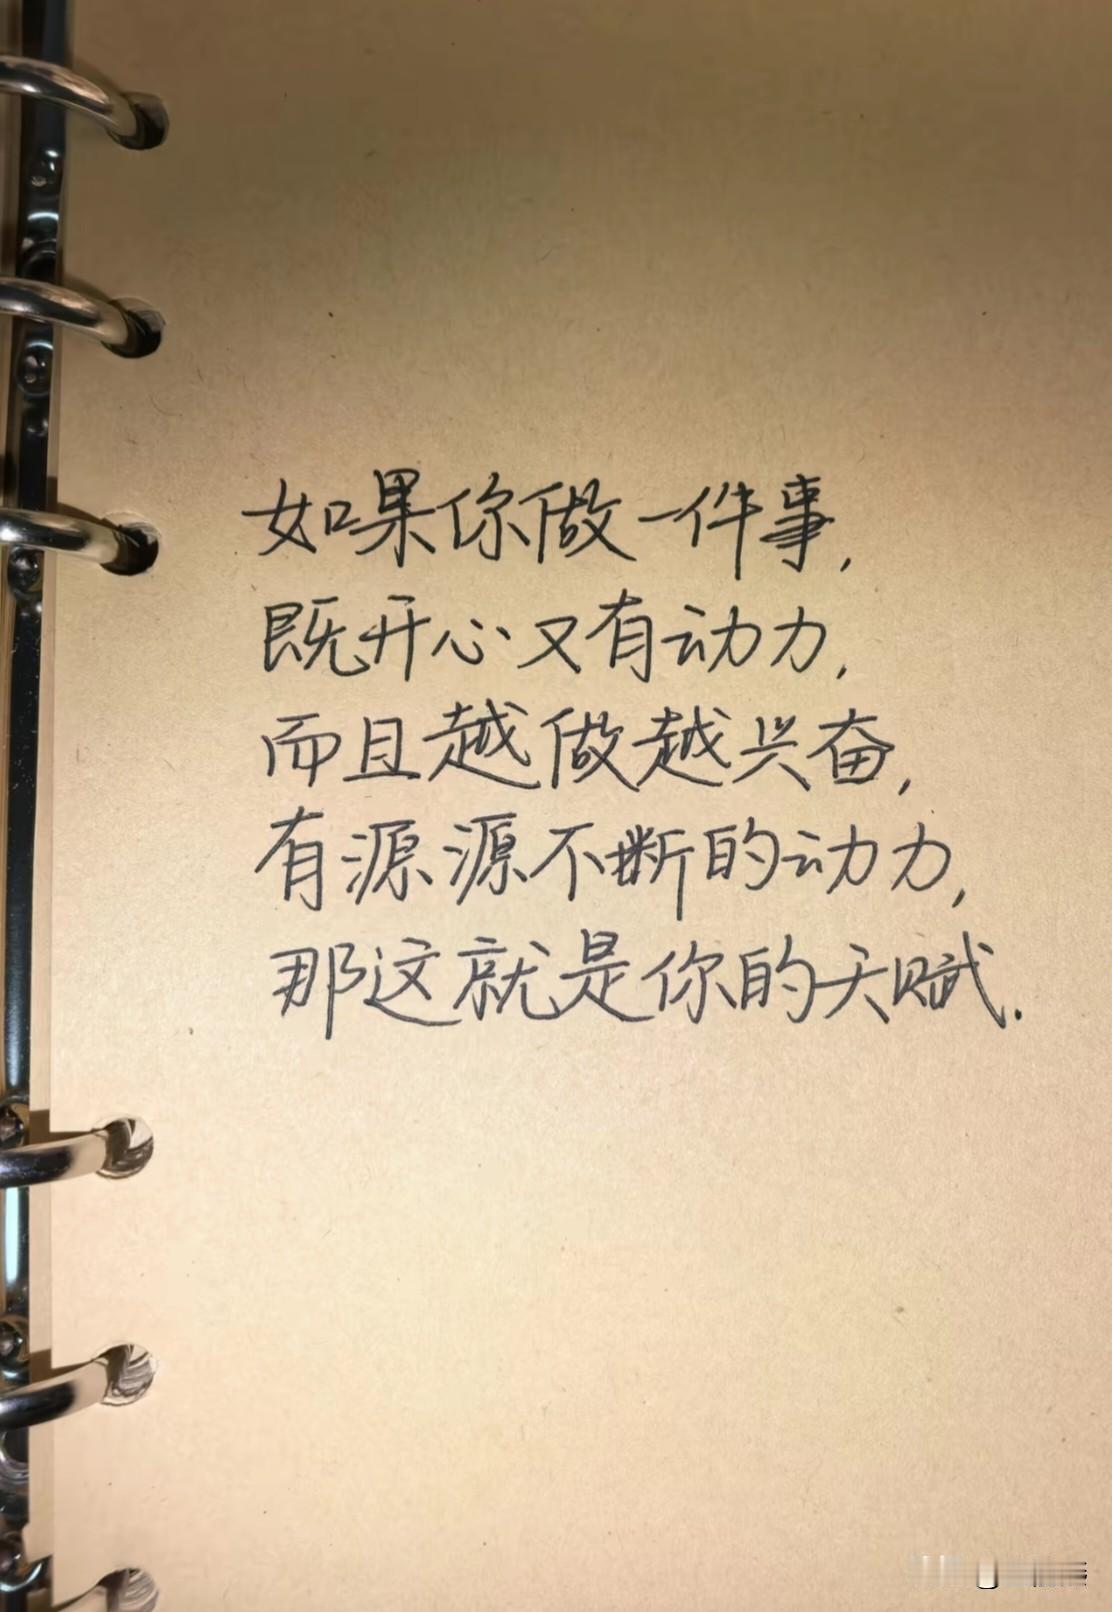 如果你做一件事,
既开心又有动力,
而且越做越兴奋,
有源源不断的动力,
那这就是你的天赋.